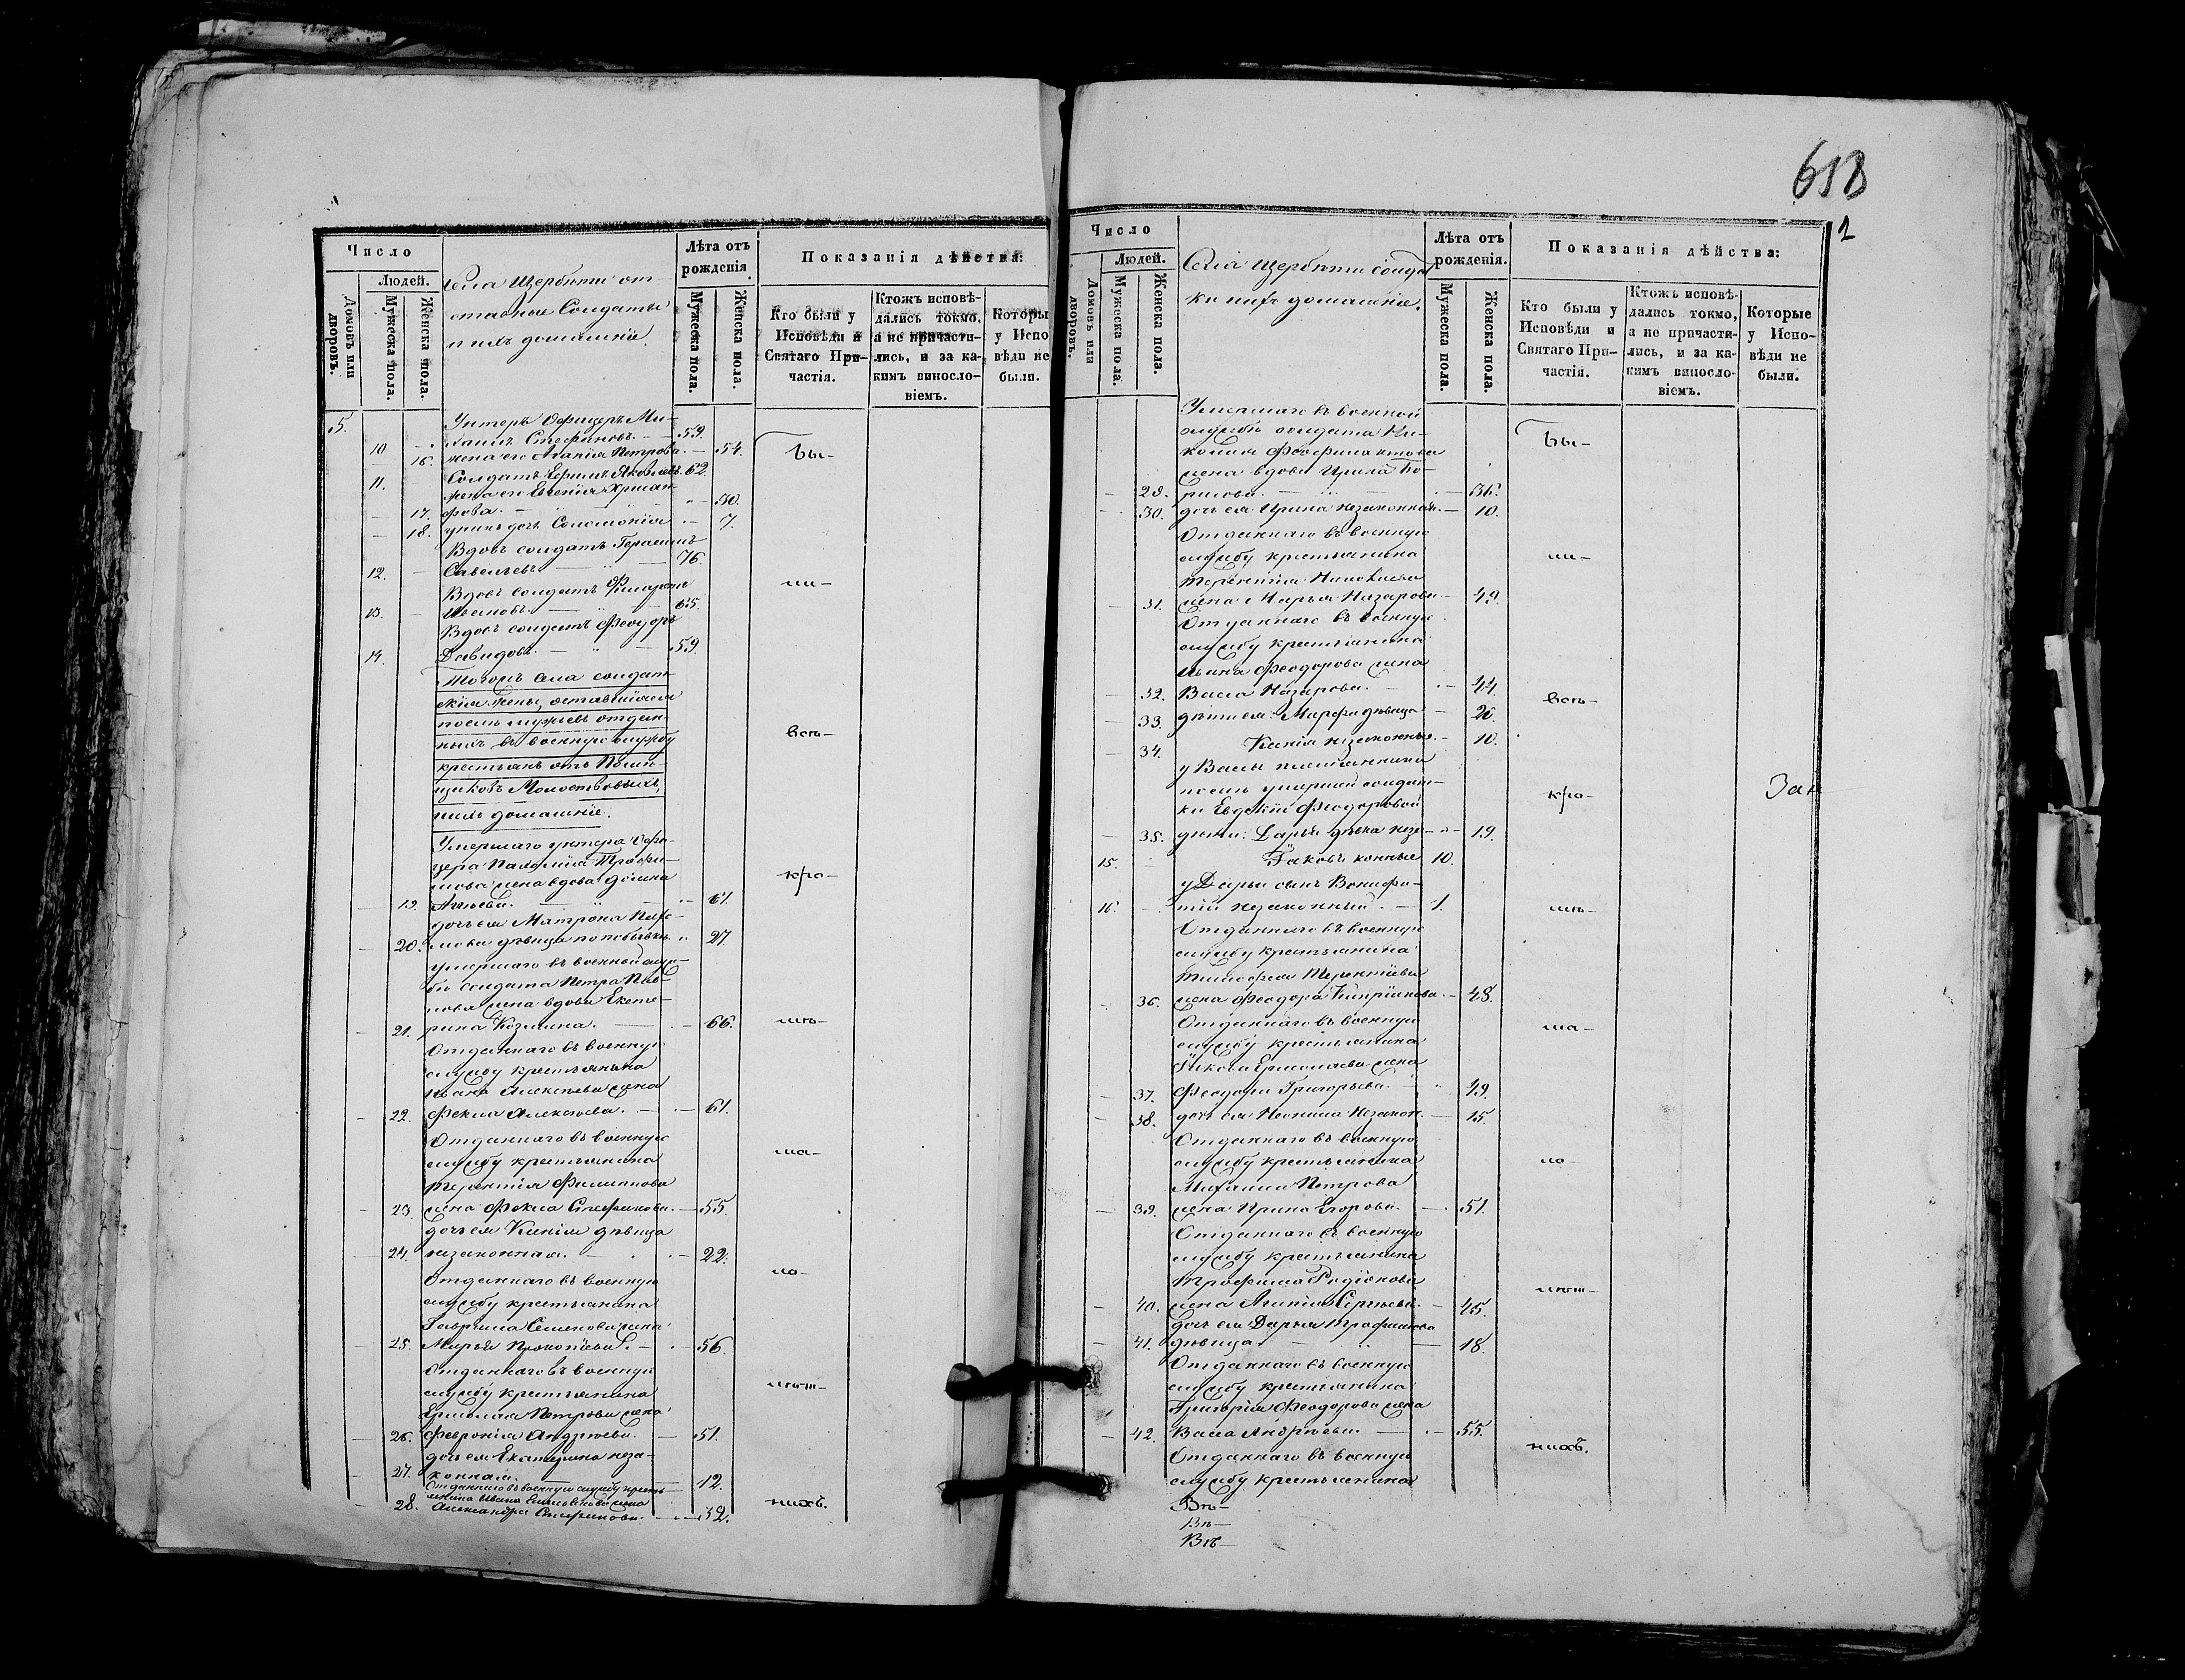 618
2
Число
Людей.
Домовъ или дворовъ.
Мужеска пола.
Женска пола.
Села Щербети от-
ставные Солдаты
и ихъ домашніе.
Лѣта отъ
рожденія.
Мужеска пола.
Женска пола.
Показанія дѣйства:
Кто были у
Исповѣди и
Святаго При-
частія.
Ктожъ исповѣ-
дались токмо,
а не причасти-
лись, и за ка-
кимъ виносло-
віемъ.
Которы
у Испо
вѣди не
были.
5. Унтеръ Офицеръ Ми-
10 хаилъ Стефановъ. 59.
16. жена его Агапія Петрова 54.
11. Солдатъ Ефимъ Яковлевъ 62.
жена его Евгенія
17. фова. 50.
18. у нихъ дочь Соломонія 7.
Вдовъ солдатъ Герасимъ
12. Савельевъ 76.
Вдовъ солдатъ Филаретъ
13. Ивановъ. 65.
Вдовъ солдатъ Феодоръ
14. Давидовъ. 59.
Тогожъ села солдат-
скія жены, оставшіяся
послѣ мужьевъ отдан-
ныхъ въ военную службу
крестьянъ отъ Помѣ-
щиковъ Молоствовыхъ,
и ихъ домашніе.
Умершаго унтеръ Офи-
цера Пахомія Трофи-
мова жена вдова
19. 61.
дочь ея Матрона Пахо-
20. мова дѣвица 27.
умершаго въ военной служ-
бѣ Солдата Петра Пав-
лова жена вдова Екате-
21. рина Козмина. 66.
Отданнаго въ военную
службу крестьянина
Ивана Алексѣева жена
22. Фекла Алексѣева. 61.
Отданнаго въ военную
службу крестьянина
Терентія Филиппова
23. жена Фекла Стефанова. 55.
дочь ея Ксенія дѣвица
24. незаконная. 22.
Отданнаго въ военную
службу крестьянина
Гавриила Семенова жена
25. Марья Прокопіева. 56.
Отданнаго въ военную
службу крестьянина
Ермолая Петрова жена
26. Февронія Андреева. 51.
дочь ея Екатерина неза-
27. конная. 12.
Отданнаго въ военную службу кресть-
янина Ивана жена
28. Александра Стефанова. 52.
Бы-
ли-
всѣ-
кро-
мѣ-
ма-
ло-
лѣт-
нихъ.
Число
Людей.
Домовъ или дворовъ.
Мужеска пола.
Женска пола.
Села Щербети солдат
ки и ихъ домашніе.
Лѣта отъ
рожденія.
Мужеска пола.
Женска пола.
Показанія дѣйства:
Кто были у
Исповѣди и
Святаго При-
частія.
Ктожъ исповѣ-
дались токмо,
а не причасти-
лись, и за ка-
кимъ винсло-
віемъ.
Которые
у Испо-
вѣди не
были.
Умершаго въ военной
службѣ солдата Ни-
колая Феофилактова
жена вдова Ирина Бо-
29. рисова. 36.
30. дочь ея Ирина незаконная. 10.
Отданнаго въ военную
службу крестьянина
Терентія Николаева
31. жена Марья Назарова 49.
Отданнаго въ военную
службу крестьянина
Ивана Феодорова жена
32. Васса Назарова. 44.
33. дѣти ея: Марфа дѣвица 20.
34. Ксенія незаконные. 10.
у Вассы племянники
послѣ умершей солдат-
ки Евдокіи Феодоровой
35. дѣти: Дарья дѣвка неза- 19.
15. Іаковъ конные 10.
у Дарьи сынъ Вонифа-
16. тій незаконный. 1.
Отданнаго въ военную
службу крестьянина
Тимофея Терентіева
36. жена Феодора Кипріанова. 48.
Отданнаго въ военную
службу крестьянина
Якова Ермолаева жена
37. Феодора Григорьева. 49.
38. дочь ея Неонила Незакон. 15.
Отданнаго въ военную
службу крестьянина
Михаила Петрова
39. жена Ирина Егорова. 51.
Отданнаго въ военную
службу крестьянина
Трофима Родіонова
40. жена Агапія Сергѣева. 45.
дочь ея Дарья Трофимова
41. дѣвица. 18.
Отданнаго въ военную
службу крестьянина
Григорія Феодорова жена
42. Васса Андреева. 55.
Отданнаго въ военную
службу крестьянина
Бы-
ли-
всѣ-
кро-
мѣ-
ма-
ло-
лѣт-
нихъ.
За